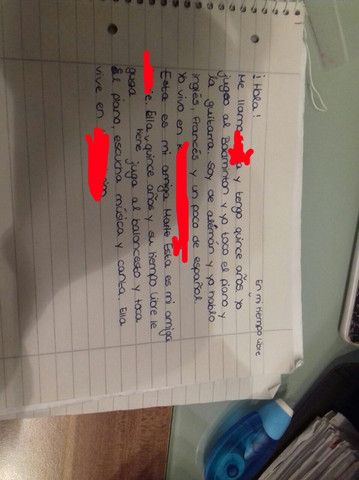 En mi tiempo libre
¡Hola!
Me llamo a y tengo quince años. Yo
juego al Badminton y yo toco el piano y
la guitarra soy de alemán y yo hablo
inglés, francés y un poco de español.
Yo vivo en
Esta es mi amiga Marie Esta es mi amiga
e. Ella y quince años y su tiempo libre le
gusta tiene juga al baloncesto y toca
el piano, escucha música y canta. Ella
vive en